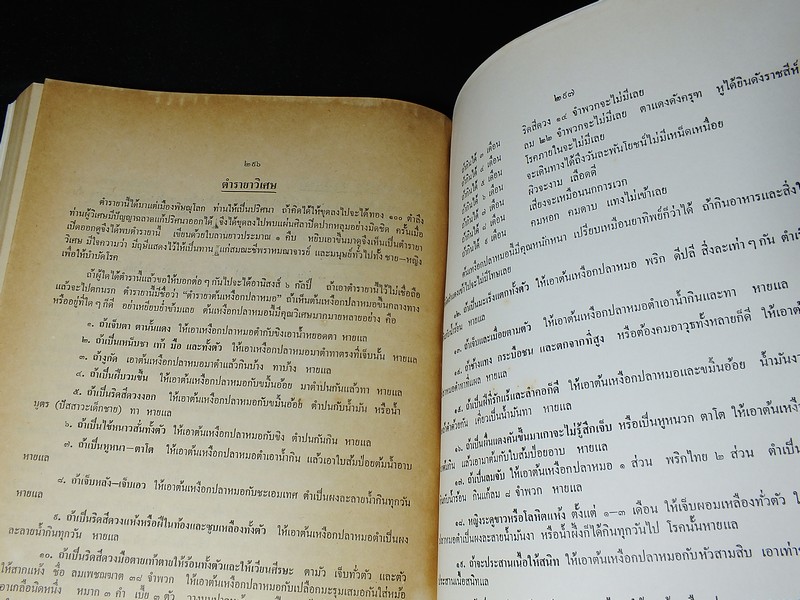 ๒๙๖
ตำรายาวิเศษ
ตำรายานี้ได้มาแต่เมืองพิษณุโลก ท่านให้เป็นปริศนา ถ้าคิดได้ให้ขุดลงไปจะได้ทอง ๑๐๐ ตำลึง
ท่านผู้วิเศษมีปัญญาฉลาดแก้ปริศนาออกได้ จึงได้ขุดลงไปพบแผ่นศิลาปิดปากหลุมอย่างมิดชิด ครั้นเมื่อ
เปิดออกดูจึงได้พบตำรายานี้ เขียนด้วยใบลานยาวประมาณ ๑ คืบ หยิบเอาขึ้นมาดูจึงเห็นเป็นตำรายา
วิเศษ มีใจความว่า มีฤษีแสดงไว้ให้เป็นทาน แก่สมณะชีพราหมณาจารย์ และมนุษย์ทั่วไปทั้ง ชาย–หญิง
เพื่อให้บำบัดโรค
ถ้าผู้ใดได้ตำรานี้แล้วขอให้บอกต่อ ๆ กันไปจะได้อานิสงส์ ๖ กัลป์ ถ้าเอาตำรายานี้ไว้ไม่เชื่อถือ
แล้วจะไปตกนรก ตำรายานี้มีชื่อว่า "ตำรายาต้นเหงือกปลาหมอ" ถ้าเห็นต้นเหงือกปลาหมอขึ้นกลางทาง
หรืออยู่ที่ใด ๆ ก็ดี อย่าเหยียบย่ำข้ามเลย ต้นเหงือกปลาหมอนี้มีคุณวิเศษมากมายหลายอย่าง คือ
๑. ถ้าเจ็บตา ตานั้นแดง ให้เอาต้นเหงือกปลาหมอตำกับขิงเอาน้ำหยอดตา หายแล
๒. ถ้าเป็นเหน็บชา เท้า มือ และทั้งตัว ให้เอาเหงือกปลาหมอมาตำทาตรงที่เจ็บนั้น หายแล
๓. ถ้างูกัด เอาต้นเหงือกปลาหมอมาตำแล้วกินบ้าง ทาบ้าง หายแล
๔. ถ้าเป็นฝีบวมขึ้น ให้เอาต้นเหงือกปลาหมอกับขมิ้นอ้อย มาตำปนกันแล้วทา หายแล
๕. ถ้าเป็นริดสีดวงงอก ให้เอาต้นเหงือกปลาหมอกับขมิ้นอ้อย ตำปนกับน้ำมัน หรือน้ำ
บุตร (ปัสสาวะเด็กชาย) ทา หายแล
๖. ถ้าเป็นไข้หนาวสั่นทั้งตัว ให้เอาต้นเหงือกปลาหมอกับขิง ตำปนกันกิน หายแล
๗. ถ้าเป็นหูหนา–ตาโต ให้เอาเหงือกปลาหมอตำเอาน้ำกิน แล้วเอาใบส้มป่อยต้มน้ำอาบ
หายแล
๘. ถ้าเจ็บหลัง–เจ็บเอว ให้เอาต้นเหงือกปลาหมอกับชะเอมเทศ ตำเป็นผงละลายน้ำกินทุกวัน
หายแล
๙. ถ้าเป็นริดสีดวงแห้งหรือฝีในท้องและซูบเหลืองทั้งตัว ให้เอาต้นเหงือกปลาหมอตำเป็นผง
ละลายน้ำกินทุกวัน หายแล
๑๐. ถ้าเป็นริดสีดวงมือตายเท้าตายให้ร้อนทั้งตัวและให้เวียนศีรษะ ตามัว เจ็บทั่วตัว และตัว
ให้สากแห้ง ชื่อ ลมเพชฌฆาต ๓๘ จำพวก ให้เอาต้นเหงือกปลาหมอกับเปลือกมะรุมเสมอกันใส่หม้อ
เอาเกลือนิดหนึ่ง หมาก ๓ คำ เบี้ย ๓ ตัว
๒๙๗
ถ้ากินได้ ๓ เดือน ริดสีดวง ๑๔ จำพวกจะไม่มีเลย
ถ้ากินได้ ๔ เดือน ลม ๒๒ จำพวกจะไม่มีเลย ตาแดงดังครุฑ หูได้ยินดังราชสีห์
ถ้ากินได้ ๕ เดือน โรคภายในจะไม่มีเลย
ถ้ากินได้ ๖ เดือน จะเดินทางได้ถึงวันละพันโยชน์ไม่มีเหน็ดเหนื่อย
ถ้ากินได้ ๗ เดือน ผิวจะงาม เลือดดี
ถ้ากินได้ ๘ เดือน เสียงจะเหมือนนกการเวก
ถ้ากินได้ ๙ เดือน คมหอก คมดาบ แทงไม่เข้าเลย
ต้นเหงือกปลาหมอนี้มีคุณหนักหนา เปรียบเหมือนยาทิพย์ก็ว่าได้ ถ้ากินอาหารและสิ่ง
จะไม่มีโทษเลย
๑๒. ถ้าเป็นมะเร็งแตกทั้งตัว ให้เอาต้นเหงือกปลาหมอ พริก ดีปลี สิ่งละเท่า ๆ กัน
หายแล
๑๓. ถ้าเจ็บและเมื่อยตามตัว ให้เอาต้นเหงือกปลาหมอตำเอาน้ำกินและทา หายแล
๑๔. ถ้าช้างแทง กระบือชน และตกจากที่สูง หรือต้องคมอาวุธทั้งหลายก็ดี ให้เอาต้น
ปลาหมอตำทาที่แผล หายแล
๑๕. ถ้าเป็นฝีที่รักแร้และลำคอก็ดี ให้เอาต้นเหงือกปลาหมอและขมิ้นอ้อย น้ำมันงา
เคี่ยวเป็นน้ำมันทา หายแล
๑๖. ถ้าเป็นผื่นแดงคันขึ้นมาจะไม่รู้สึกเจ็บ หรือเป็นหูหนวก ตาโต ให้เอาต้นเหงือก
แล้วเอามาต้มกับใบส้มป่อยอาบ หายแล
๑๗. ถ้าเป็นลมจับ ให้เอาต้นเหงือกปลาหมอ ๑ ส่วน พริกไทย ๒ ส่วน ตำเป็น
กินกับน้ำร้อน กินแก้ลม ๘ จำพวก หายแล
๑๘. หญิงระดูขาวหรือโลหิตแห้ง ตั้งแต่ ๑–๓ เดือน ให้เจ็บผอมเหลืองทั่วตัว ให้
ปลาหมอตำเป็นผงละลายน้ำมันงา หรือน้ำผึ้งก็ได้กินทุกวันไป โรคนั้นหายแล
๑๙. ถ้าจะประสานเนื้อให้สนิท ให้เอาต้นเหงือกปลาหมอกับหัวสามสิบ เอาเท่า
ประสานเนื้อสนิทแล